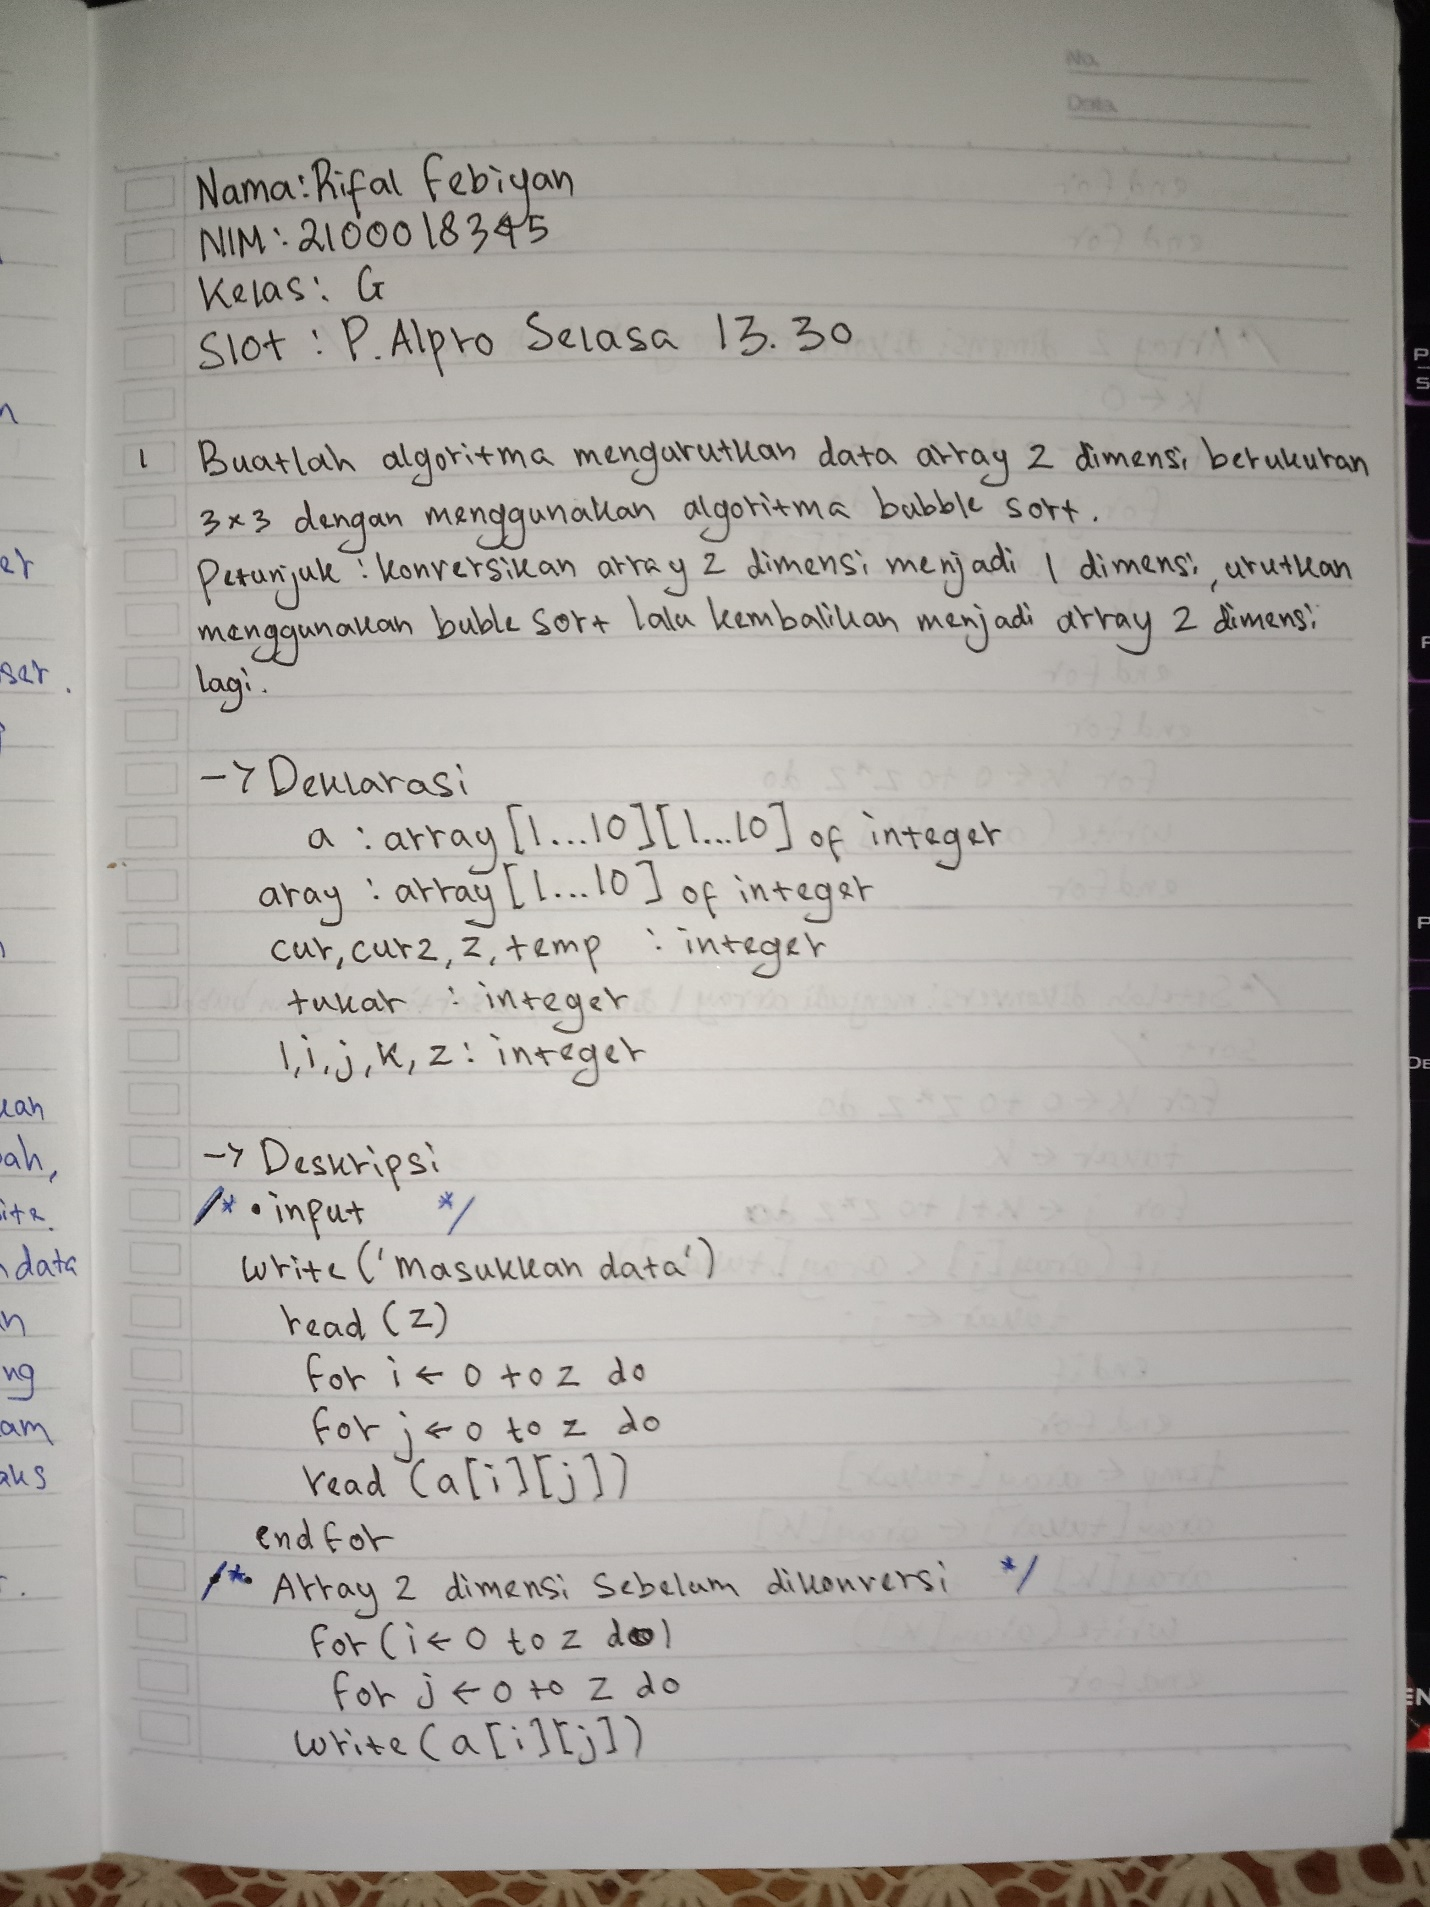 No.
Date
Nama: Rifal Febiyan
NIM : 2100018345
Kelas : G
Slot : P. Alpro Selasa 13.30
1 Buatlah algoritma mengurutkan data array 2 dimensi berukuran
3x3 dengan menggunakan algoritma bubble sort.
Petunjuk : konversikan array 2 dimensi menjadi 1 dimensi, urutkan
menggunakan buble sort lalu kembalikan menjadi array 2 dimensi
lagi.
-> Deklarasi
a : array [1...10][1...10] of integer
aray : array [1...10] of integer
cur, cur2, z, temp : integer
tukar : integer
l, i, j, k, z : integer
-> Deskripsi
/* • input */
write ('masukkan data')
read (z)
for i ← 0 to z do
for j ← 0 to z do
read (a[i][j])
endfor
/* • Array 2 dimensi sebelum dikonversi */
for (i ← 0 to z do)
for j ← 0 to z do
write (a[i][j])